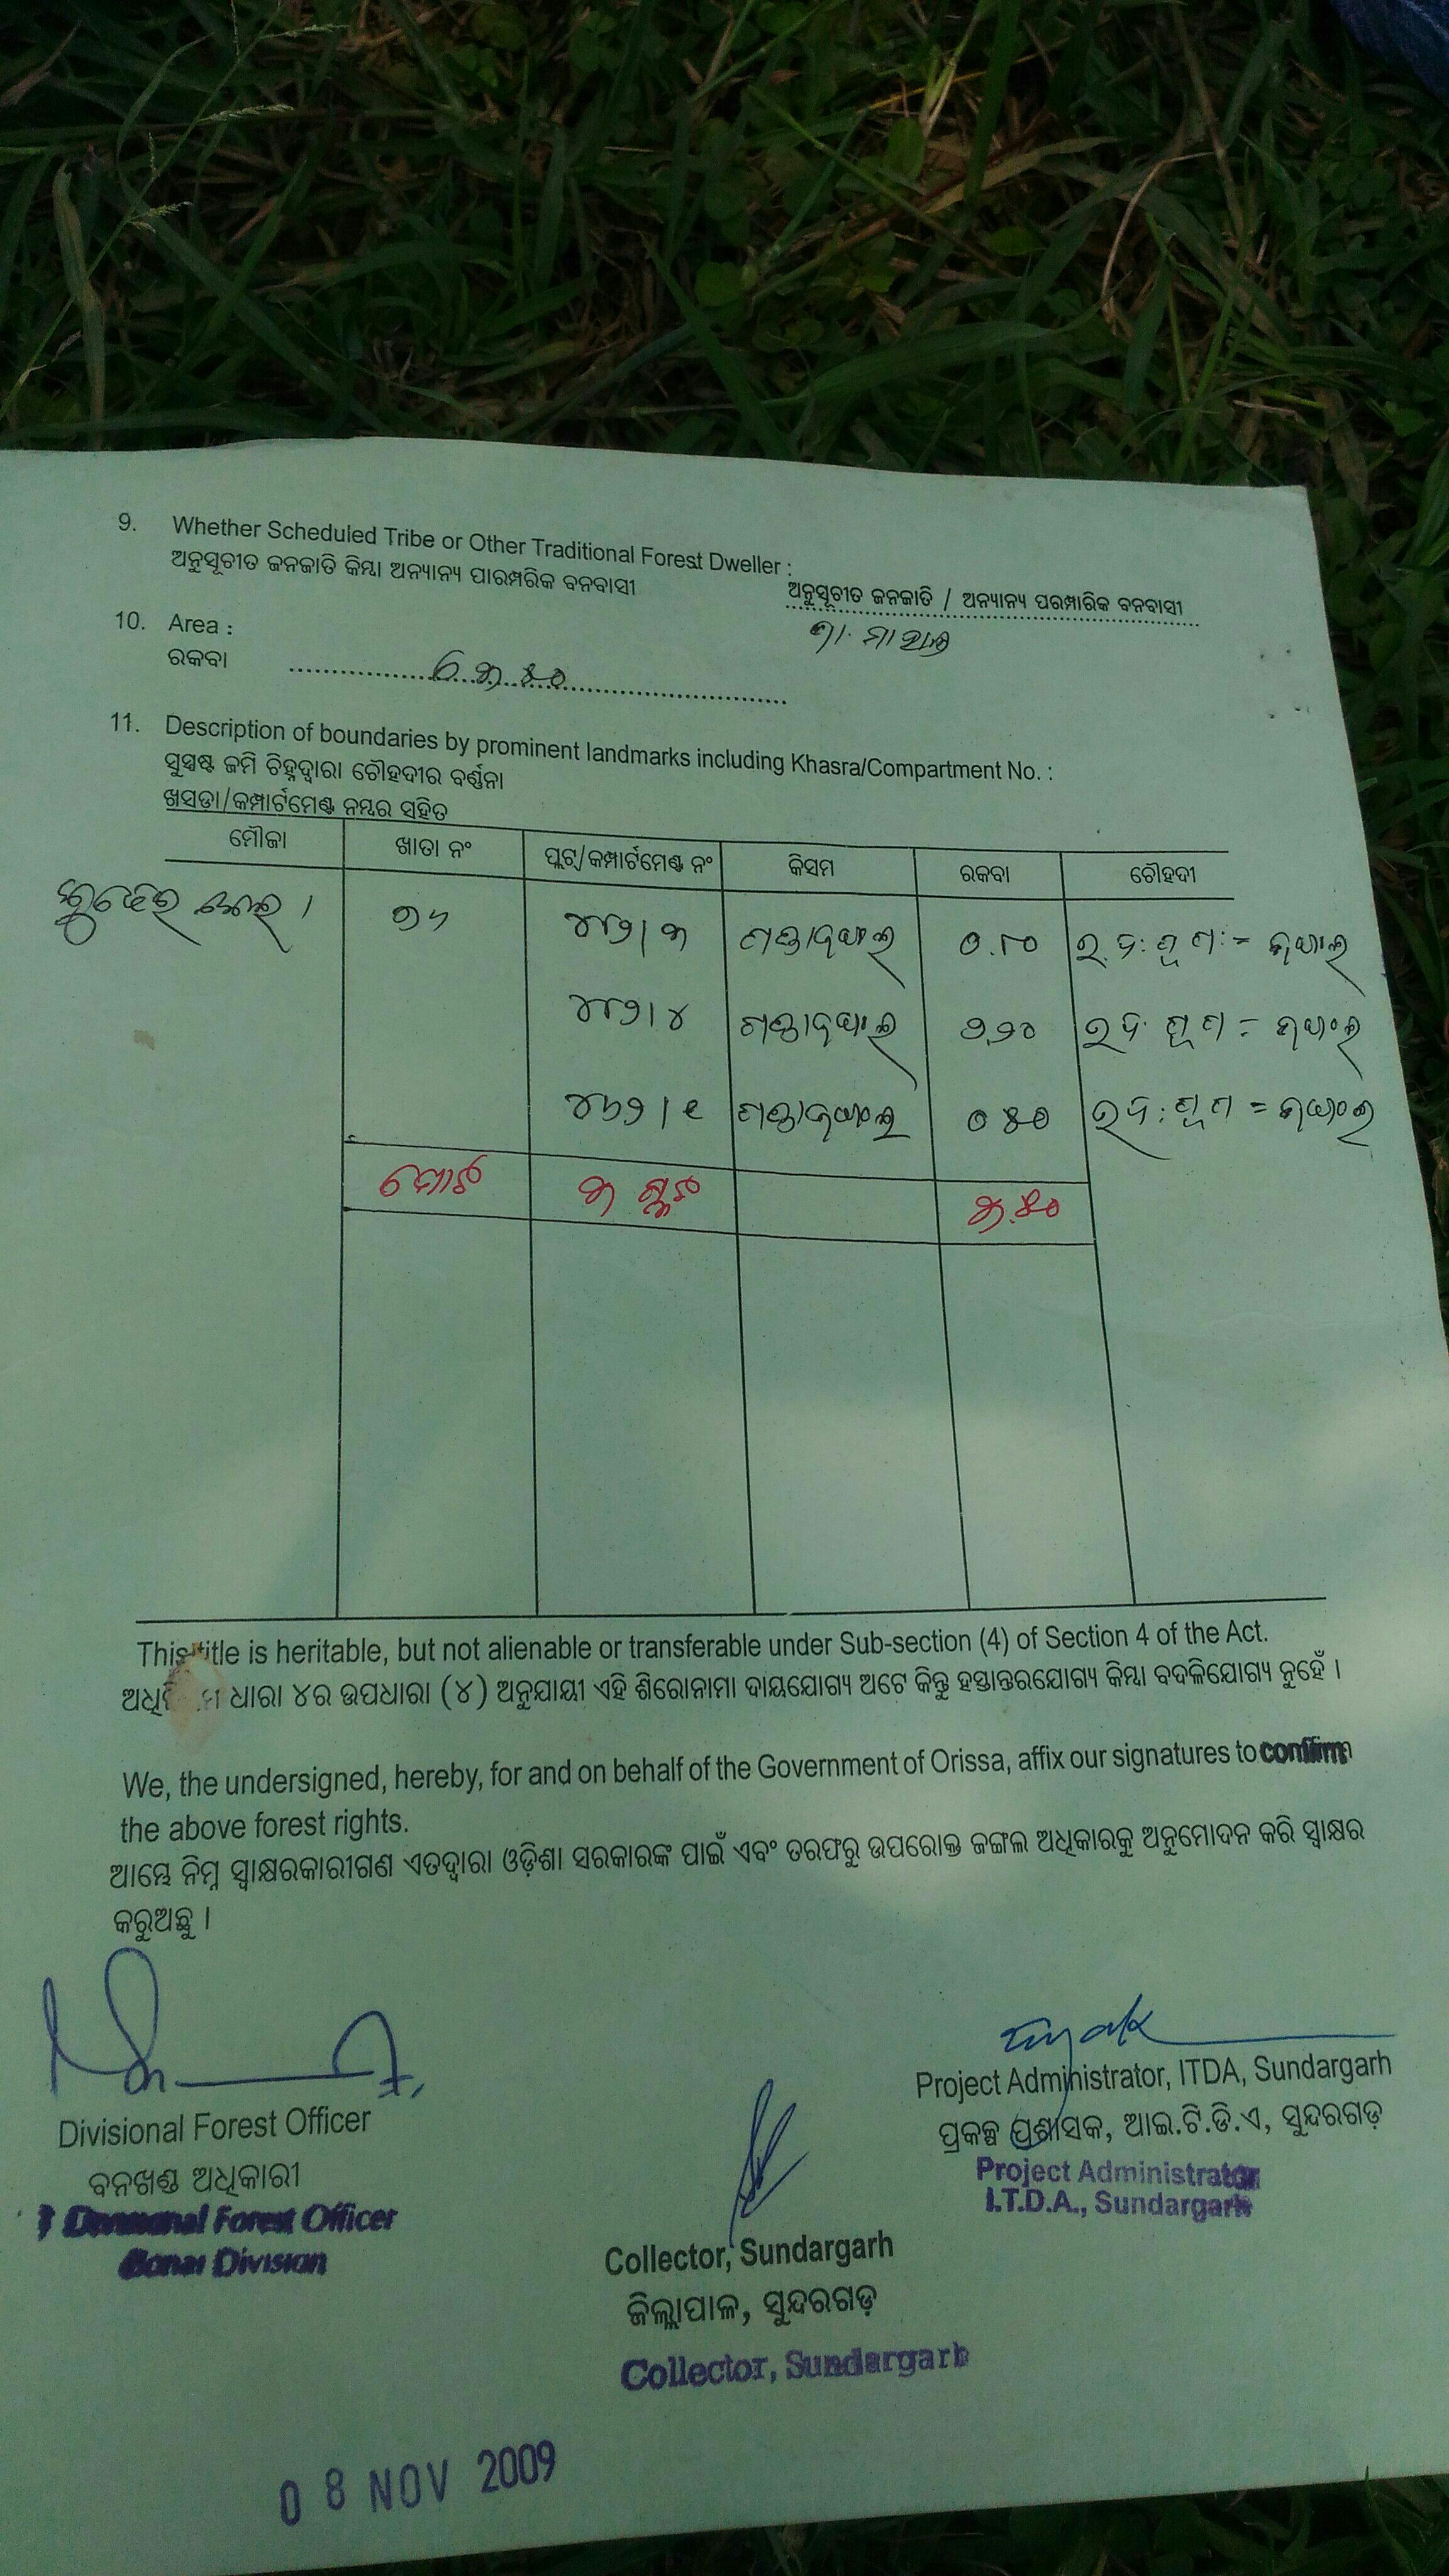 9. Whether Scheduled Tribe or Other Traditional Forest Dweller :
ଅନୁସୂଚୀତ ଜନଜାତି କିମ୍ବା ଅନ୍ୟାନ୍ୟ ପାରମ୍ପରିକ ବନବାସୀ
ଅନୁସୂଚୀତ ଜନଜାତି / ଅନ୍ୟାନ୍ୟ ପରମ୍ପାରିକ ବନବାସୀ
10. Area :
ରକବା
11. Description of boundaries by prominent landmarks including Khasra/Compartment No. :
ସୁସ୍ପଷ୍ଟ ଜମି ଚିହ୍ନଦ୍ୱାରା ଚୌହଦୀର ବର୍ଣ୍ଣନା
ଖସଡ଼ା/କମ୍ପାର୍ଟମେଣ୍ଟ ନମ୍ବର ସହିତ
ମୌଜା ଖାତା ନଂ ପ୍ଲଟ୍/କମ୍ପାର୍ଟମେଣ୍ଟ ନଂ କିସମ ରକବା ଚୌହଦୀ
୪୮୨/୩ ୦.୮୦
୪୮୨/୪ ୨.୨୦
୦.୫୦
ମୋଟ ୩ ପ୍ଲଟ ୩.୫୦
This title is heritable, but not alienable or transferable under Sub-section (4) of Section 4 of the Act.
ଧାରା ୪ର ଉପଧାରା (୪) ଅନୁଯାୟୀ ଏହି ଶିରୋନାମା ଦାୟଯୋଗ୍ୟ ଅଟେ କିନ୍ତୁ ହସ୍ତାନ୍ତରଯୋଗ୍ୟ କିମ୍ବା ବଦଳିଯୋଗ୍ୟ ନୁହେଁ ।
We, the undersigned, hereby, for and on behalf of the Government of Orissa, affix our signatures to confirm
the above forest rights.
ଆମ୍ଭେ ନିମ୍ନ ସ୍ୱାକ୍ଷରକାରୀଗଣ ଏତଦ୍ୱାରା ଓଡ଼ିଶା ସରକାରଙ୍କ ପାଇଁ ଏବଂ ତରଫରୁ ଉପରୋକ୍ତ ଜଙ୍ଗଲ ଅଧିକାରକୁ ଅନୁମୋଦନ କରି ସ୍ୱାକ୍ଷର
କରୁଅଛୁ ।
Project Administrator, ITDA, Sundargarh
ପ୍ରକଳ୍ପ ପ୍ରଶାସକ, ଆଇ.ଟି.ଡି.ଏ, ସୁନ୍ଦରଗଡ଼
Project Administrator
I.T.D.A., Sundargarh
Divisional Forest Officer
ବନଖଣ୍ଡ ଅଧିକାରୀ
Divisional Forest Officer
Bonai Division
Collector, Sundargarh
ଜିଲ୍ଲାପାଳ, ସୁନ୍ଦରଗଡ଼
Collector, Sundargarh
08 NOV 2009